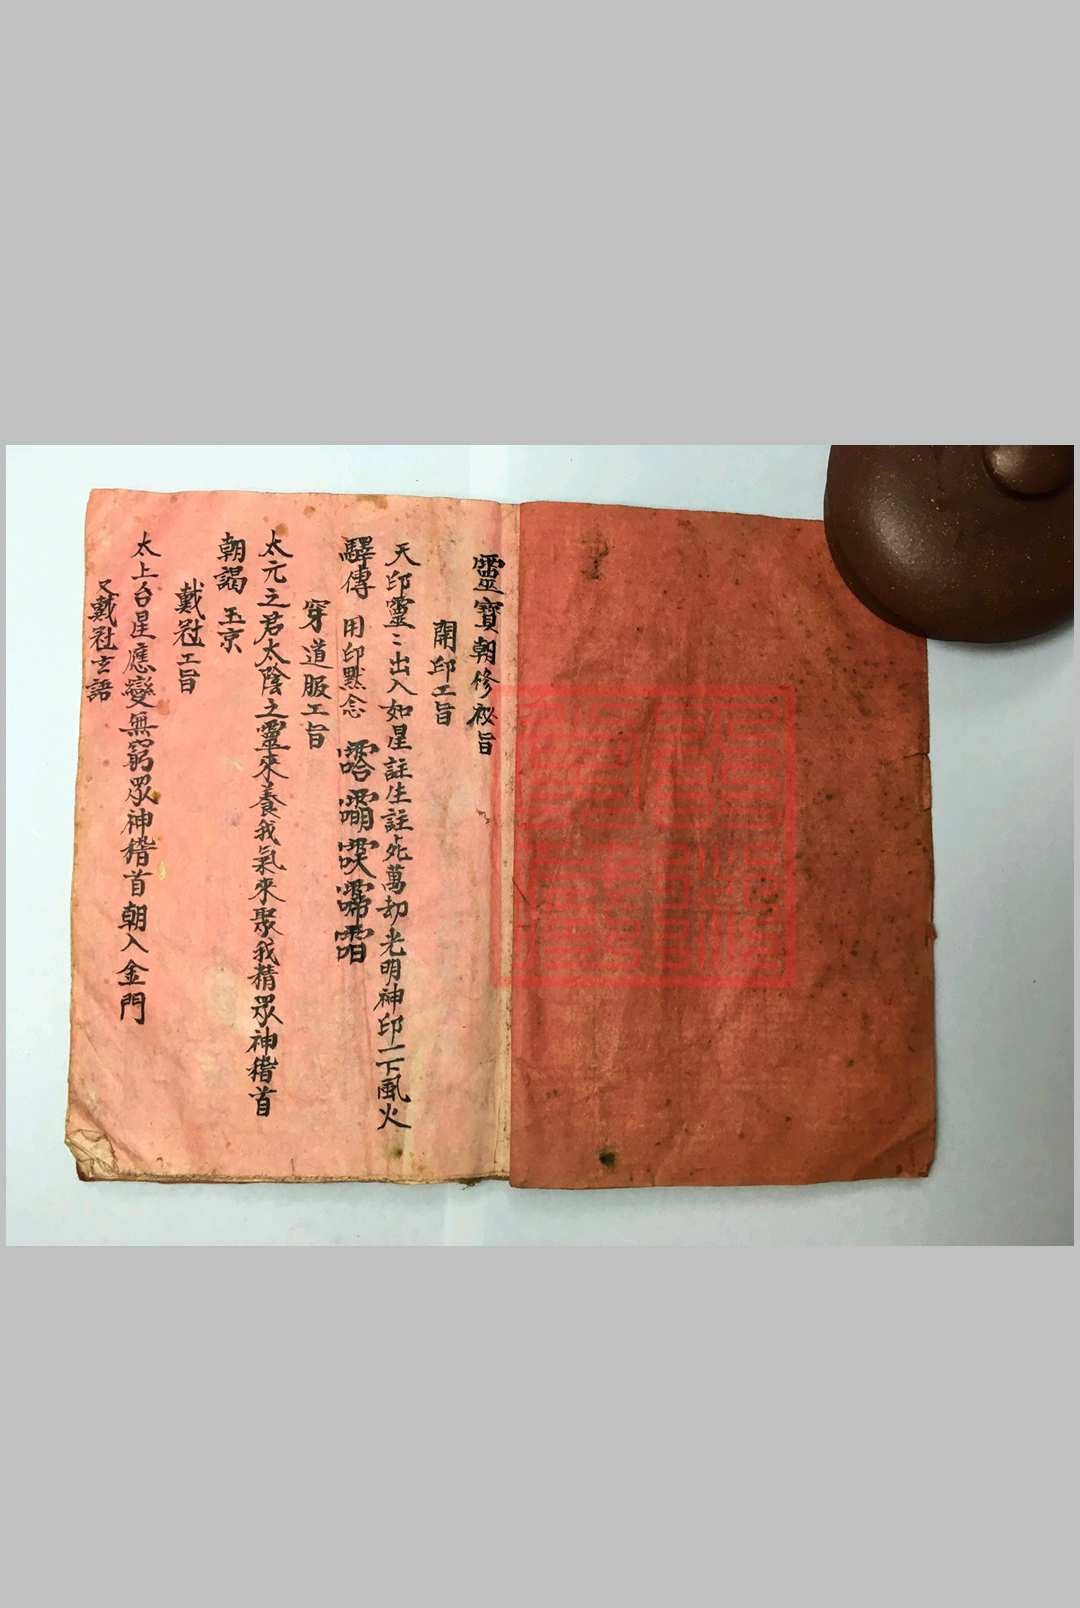 靈寶朝修祕旨
開印工旨
天印靈〻出入如星註生註死萬劫光明神印一下風火
驛傳 用印黙念
穿道服工旨
太元之君太陰之靈來養我氣來聚我精眾神稽首
朝謁玉京
戴冠工旨
太上台星應變無窮眾神稽首朝入金門
又戴冠玄語